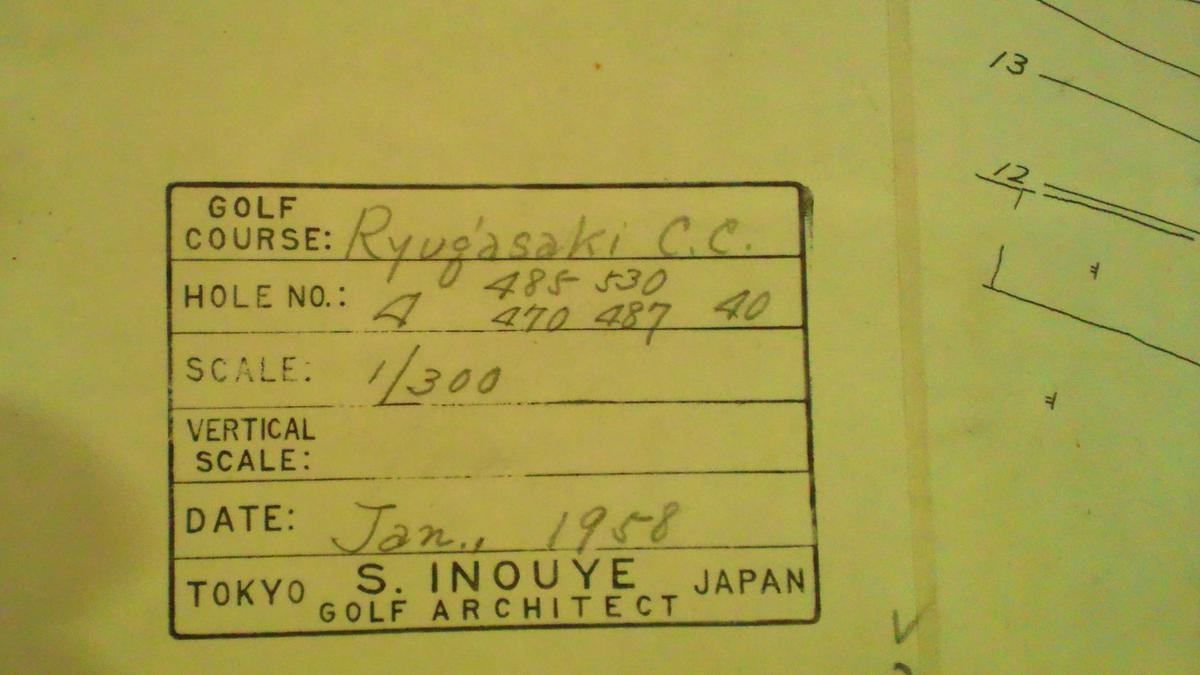 GOLF
COURSE: Ryugasaki C.C.
HOLE NO.: 4 485 530
470 487 40
SCALE: 1/300
VERTICAL
SCALE:
DATE: Jan., 1958
TOKYO S. INOUYE JAPAN
GOLF ARCHITECT
13
12